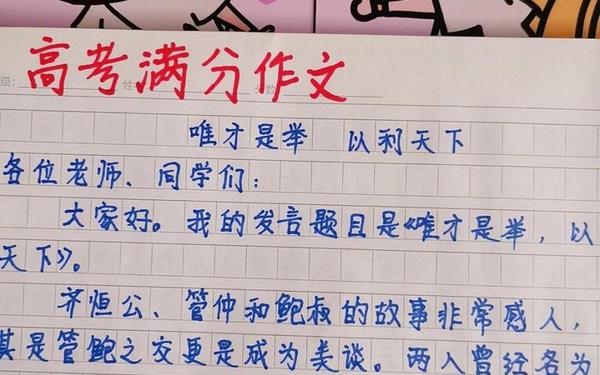 高考满分作文
唯才是举 以利天下
各位老师、同学们：
大家好。我的发言题目是《唯才是举，以
天下》。
齐恒公、管仲和鲍叔的故事非常感人，
其是管鲍之交更是成为美谈。两人曾经各为